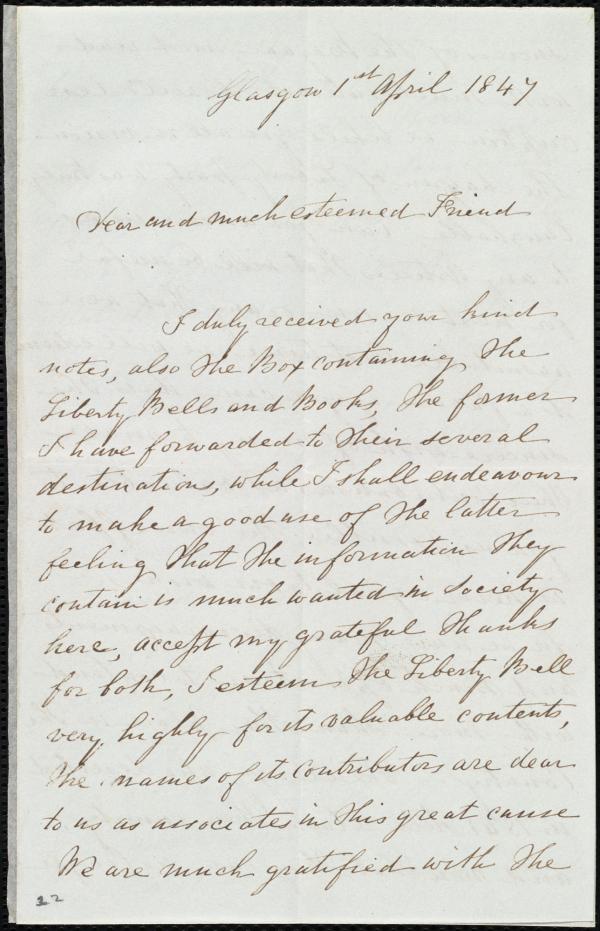 Glasgow 1st April 1847
Dear and much esteemed Friend
I duly received your kind
notes, also the Box containing the
Liberty Bells and Books, the former
I have forwarded to their several
destinations, while I shall endeavour
to make a good use of the latter
feeling that the information they
contain is much wanted in society
here, accept my grateful thanks
for both, I esteem the Liberty Bell
very highly for its valuable contents,
the names of its contributors are dear
to us as associates in this great cause
We are much gratified with the
22